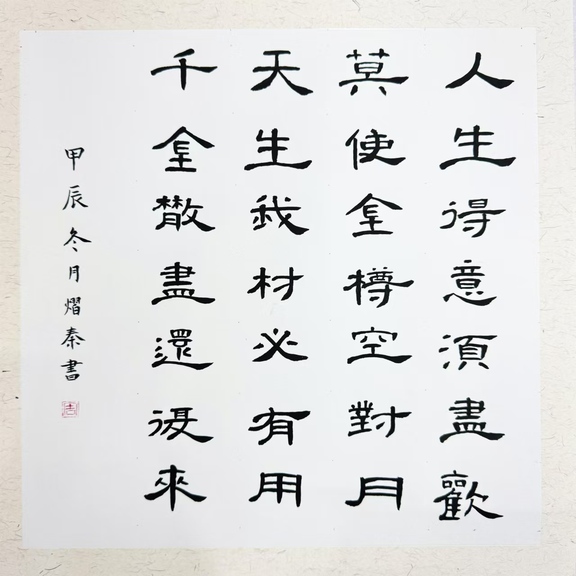 人生得意須盡歡
莫使金樽空對月
天生我材必有用
千金散盡還復來
甲辰冬月熠秦書